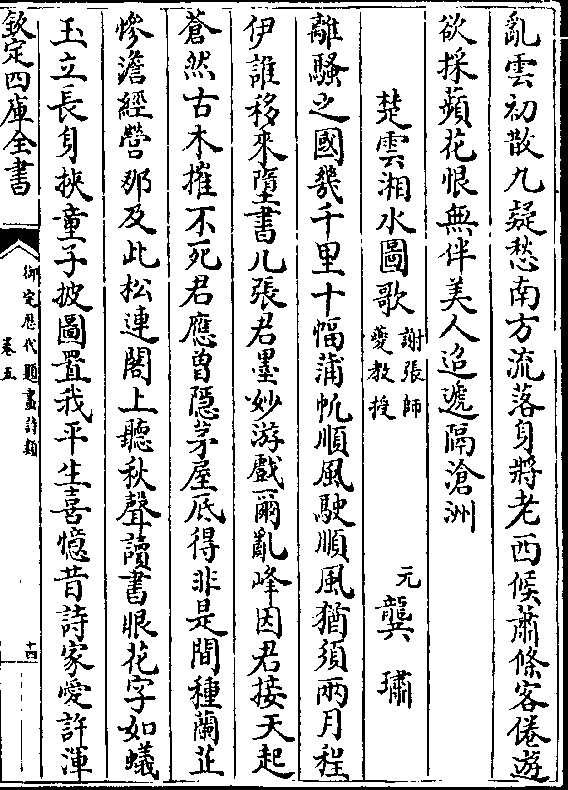 亂雲初散九疑愁南方流落身將老西候蕭條客倦遊
欲採蘋花恨無伴美人迢遞隔滄洲
楚雲湘水圖歌謝張師夔教授 元 龔璛
離騷之國幾千里十幅蒲帆順風駛順風猶須兩月程
伊誰移來墮書几張君墨妙游戲爾亂峰因君接天起
蒼然古木摧不死君應曽隱茅屋底得非是間種蘭芷
慘澹經營那及此松連閣上聽秋聲讀書眼花字如蟻
玉立長身挾童子披圖置我平生喜憶昔詩家愛許渾
欽定四庫全書
御定歴代題畫詩類
卷五
十四